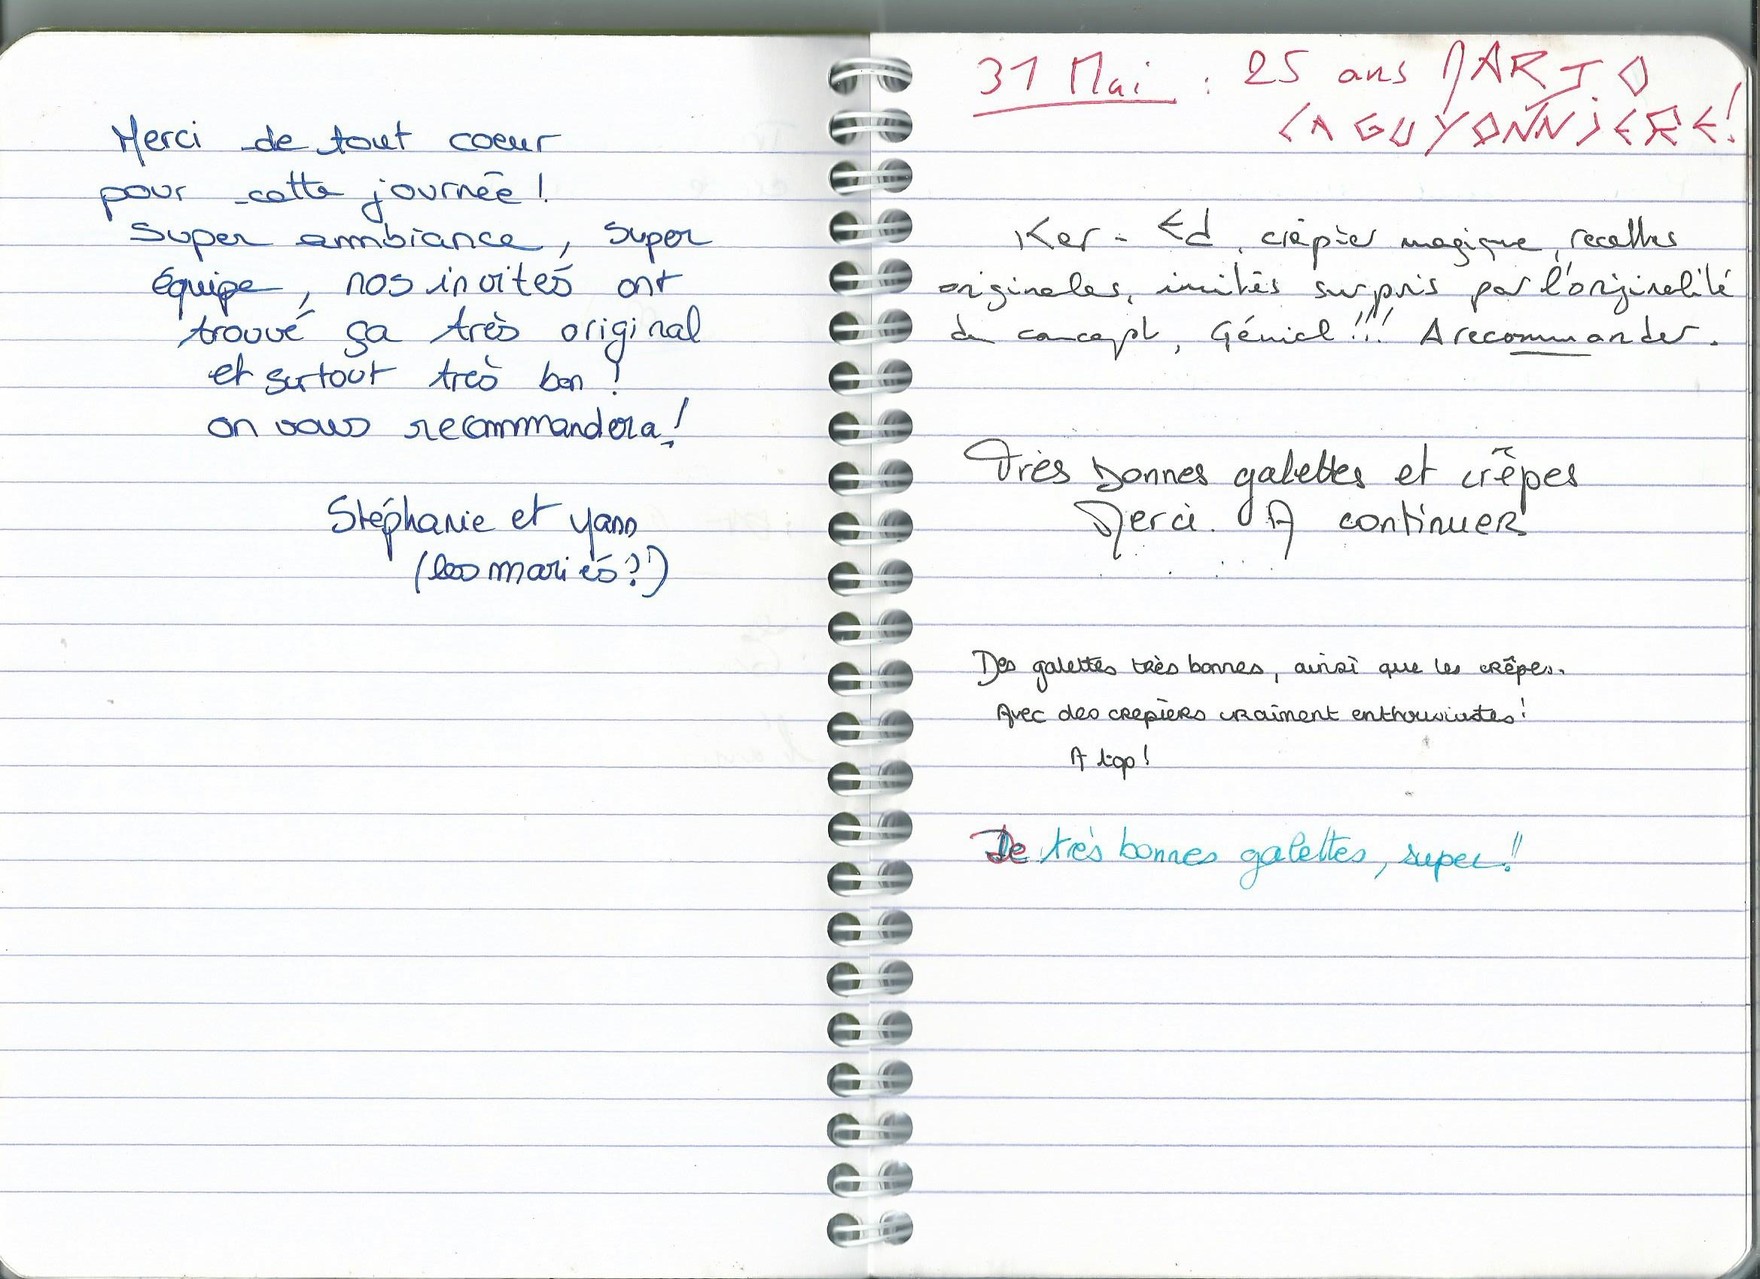 Merci de tout coeur
pour cette journée !
Super ambiance, super
équipe, nos invités ont
trouvé ça très original
et surtout très bon !
on vous recommandera !
Stéphanie et Yann
(les mariés ?')
31 Mai : 25 ans MARJO
LA GUYONNIERE !
Ker - Ed, crêpier magique, recettes
originales, invités surpris par l'originalité
du concept, Génial !!! A recommander.
Très bonnes galettes et crêpes
Merci. A continuer
Des galettes très bonnes, ainsi que les crêpes.
Avec des crepièrs vraiment enthousiastes !
A top !
De très bonnes galettes, super !!